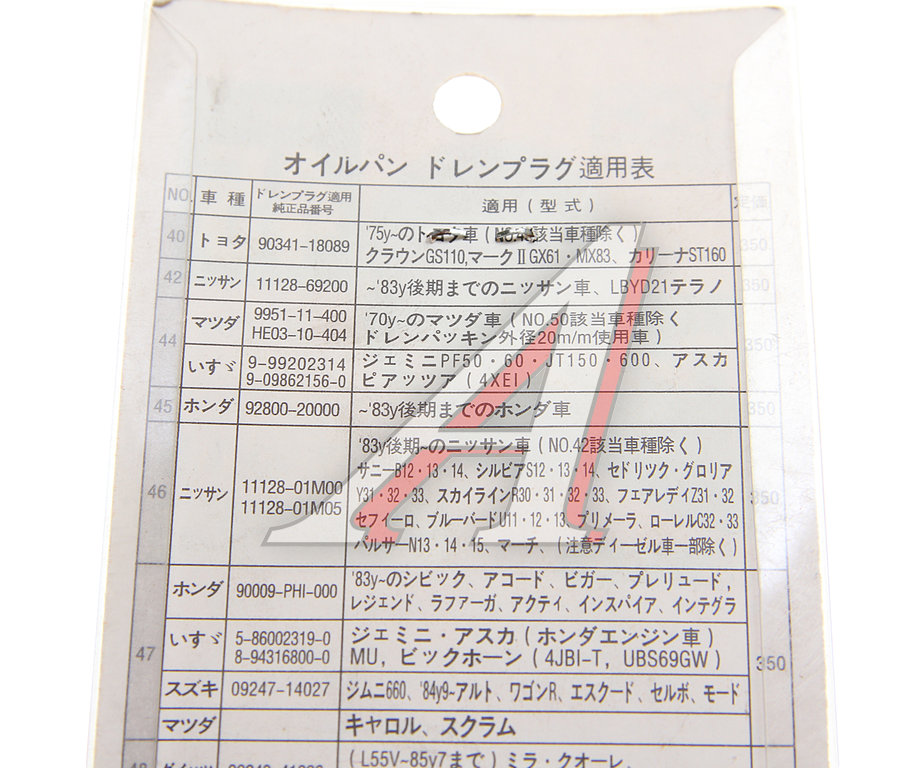 オイルパン ドレンプラグ適用表
NO. 車種 ドレンプラグ適用 純正品番号 適用(型式) 定価
40 トヨタ 90341-18089 '75y~のトヨタ車(NO.      該当車種除く) 350
クラウンGS110,マークⅡGX61・MX83、カリーナST160
42 ニッサン 11128-69200 ~'83y後期までのニッサン車、LBYD21テラノ 350
44 マツダ 9951-11-400 '70y~のマツダ車(NO.50該当車種除く 350
HE03-10-404 ドレンパッキン外径20m/m使用車)
いすゞ 9-99202314 ジェミニPF50・60・JT150・600、アスカ
9-09862156-0 ピアッツァ(4XEI)
45 ホンダ 92800-20000 ~'83y後期までのホンダ車 350
'83y後期~のニッサン車(NO.42該当車種除く)
サニーB12・13・14、シルビアS12・13・14、セドリック・グロリア
46 ニッサン 11128-01M00 Y31・32・33、スカイラインR30・31・32・33、フェアレディZ31・32 350
11128-01M05 セフィーロ、ブルーバードU11・12・13、プリメーラ、ローレルC32・33
パルサーN13・14・15、マーチ、(注意ディーゼル車一部除く)
ホンダ 90009-PHI-000 '83y~のシビック、アコード、ビガー、プレリュード,
レジェンド、ラファーガ、アクティ、インスパイア、インテグラ
47 いすゞ 5-86002319-0 ジェミニ・アスカ(ホンダエンジン車) 350
8-94316800-0 MU,ビックホーン(4JBI-T,UBS69GW)
スズキ 09247-14027 ジムニ660、'84y9~アルト、ワゴンR、エスクード、セルボ、モード
マツダ キャロル、スクラム
48 (L55V~85y7まで)ミラ・クオーレ、